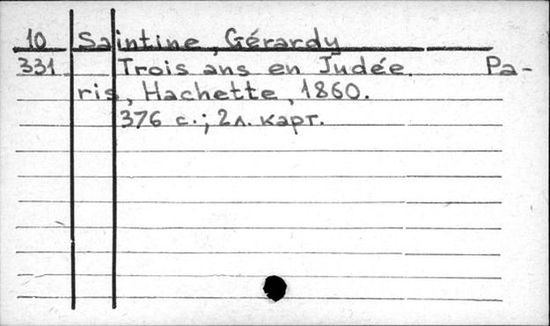 10 Saintine, Gérardy
331 Trois ans en Judée. Pa-
ris, Hachette, 1860.
376 с.; 2л. карт.